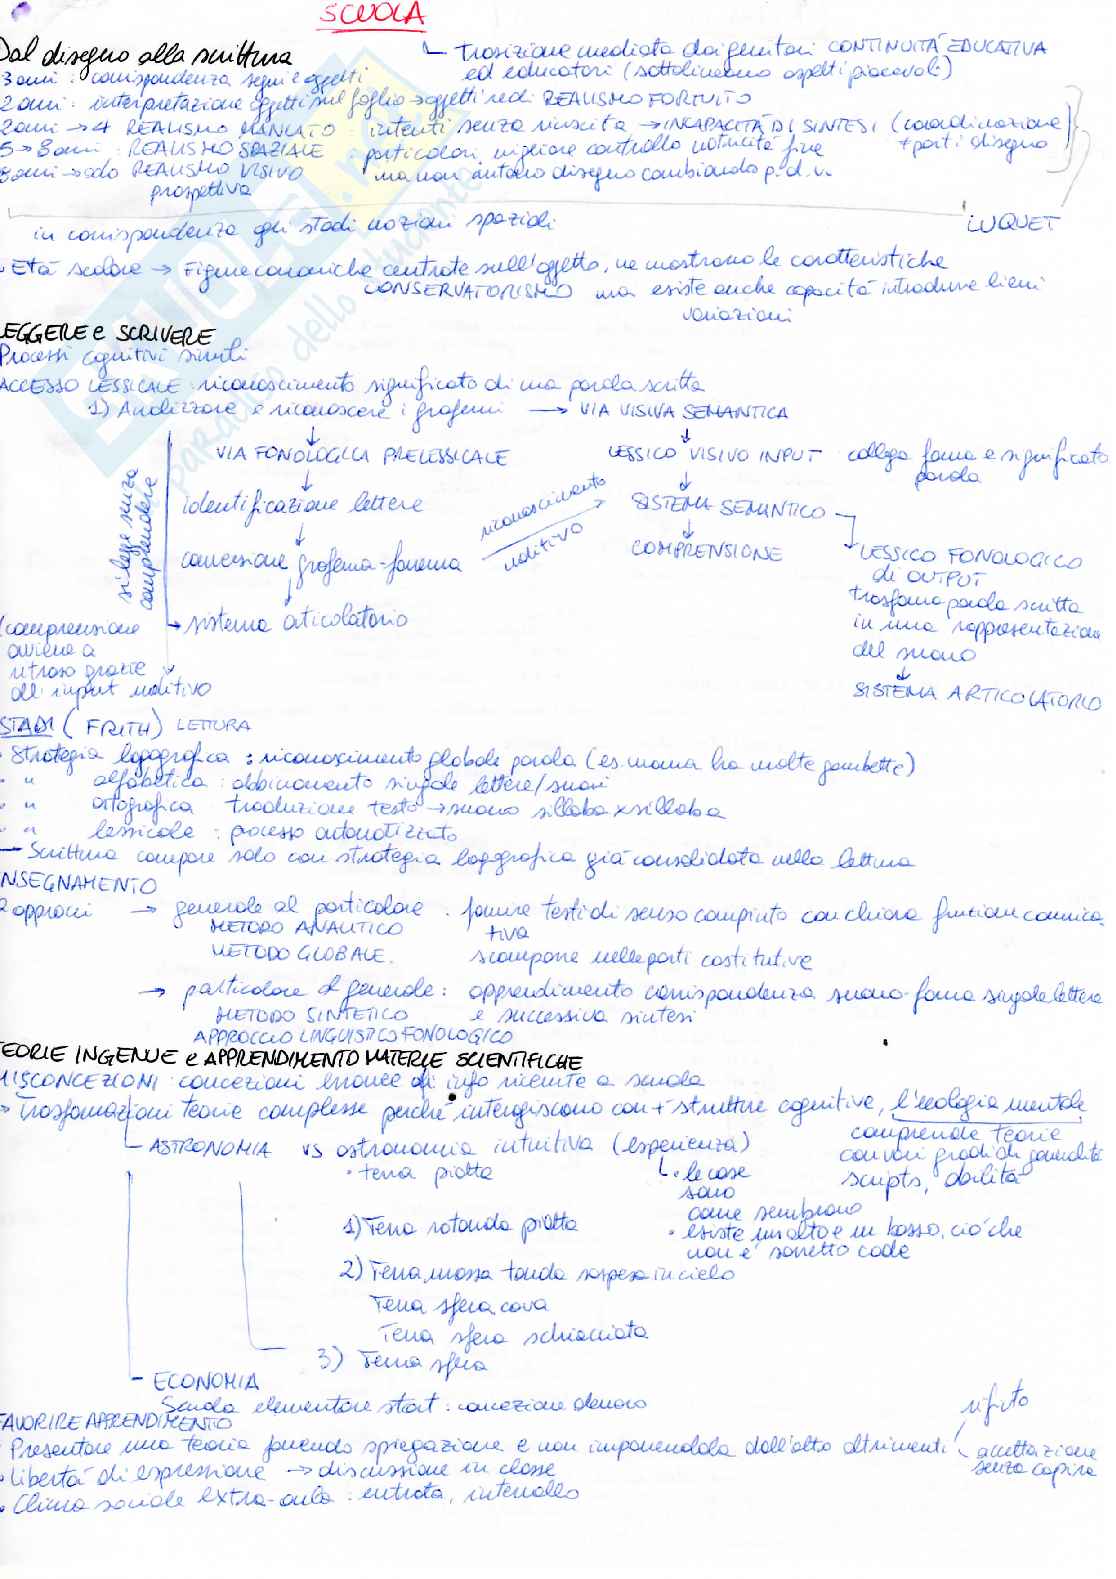 SCUOLA
Dal disegno alla scrittura
Trasizione mediata dai genitori CONTINUITÀ EDUCATIVA
ed educatori (sottolineano aspetti piacevoli)
3 anni : corrispondenza segni e oggetti
2 anni : interpretazione oggetti sul foglio → oggetti reali REALISMO FORTUITO
2 anni → 4 REALISMO MANCATO intenti senza riuscita → INCAPACITÀ DI SINTESI (coordinazione
+ parti disegno
5 → 8 anni : REALISMO SPAZIALE particolari, migliore controllo motricità fine
8 anni → ado REALISMO VISIVO ma non mutano disegno cambiando p.d.v.
prospettiva
LUQUET
in corrispondenza gli stadi nozioni spaziali
• Età scolare → Figure canoniche centrate sull'oggetto, ne mostrano le caratteristiche
CONSERVATORISMO ma esiste anche capacità introdurre lievi
variazioni
LEGGERE e SCRIVERE
Processi cognitivi simili
ACCESSO LESSICALE : riconoscimento significato di una parola scritta
1) Analizzare e riconoscere i grafemi → VIA VISIVA SEMANTICA
VIA FONOLOGICA PRELESSICALE
LESSICO VISIVO INPUT collega forma e significato
parola
identificazione lettere
riconoscimento
uditivo
SISTEMA SEMANTICO
conversione grafema-fonema
COMPRENSIONE
si legge senza
comprendere
LESSICO FONOLOGICO
di OUTPUT
trasforma parola scritta
in una rappresentazione
del suono
sistema articolatorio
(comprensione
avviene a
ritroso grazie
all'input uditivo
SISTEMA ARTICOLATORIO
STADI (FRITH) LETTURA
• Strategia logografica : riconoscimento globale parola (es. mamma ha molte gambette)
• " alfabetica : abbinamento singole lettere/suoni
• " ortografica traduzione testo → suono sillaba x sillaba
• " lessicale : processo automatizzato
— Scrittura compare solo con strategia logografica già consolidata nella lettura
INSEGNAMENTO
2 approcci → generale al particolare : fornire testi di senso compiuto con chiara funzione comunica
METODO ANALITICO tiva
METODO GLOBALE. scompone nelle parti costitutive
→ particolare al generale : apprendimento corrispondenza suono-forma singole lettere
METODO SINTETICO e successiva sintesi
APPROCCIO LINGUISTICO FONOLOGICO
TEORIE INGENUE e APPRENDIMENTO MATERIE SCIENTIFICHE
MISCONCEZIONI : concezioni erronee di info ricevute a scuola
→ Trasformazioni teorie complesse perché interagiscono con + strutture cognitive, l'ecologia mentale
comprende teorie
con vari gradi di generalità
scripts, abilità
ASTRONOMIA vs astronomia intuitiva (esperienza)
• terra piatta
• le cose
sono
come sembrano
• esiste un alto e un basso, ciò che
non è sorretto cade
1) Terra rotonda piatta
2) Terra massa tonda sospesa in cielo
Terra sfera cava
Terra sfera schiacciata
3) Terra sfera
ECONOMIA
Scuola elementare start : concezione denaro
FAVORIRE APPRENDIMENTO
• Presentare una teoria fornendo spiegazione e non imponendola dall'alto altrimenti
rifiuto
accettazione
senza capire
• Libertà di espressione → discussione in classe
• Clima sociale extra-aula : entrata, intervallo
SKUOLA.net
paradiso dello studente